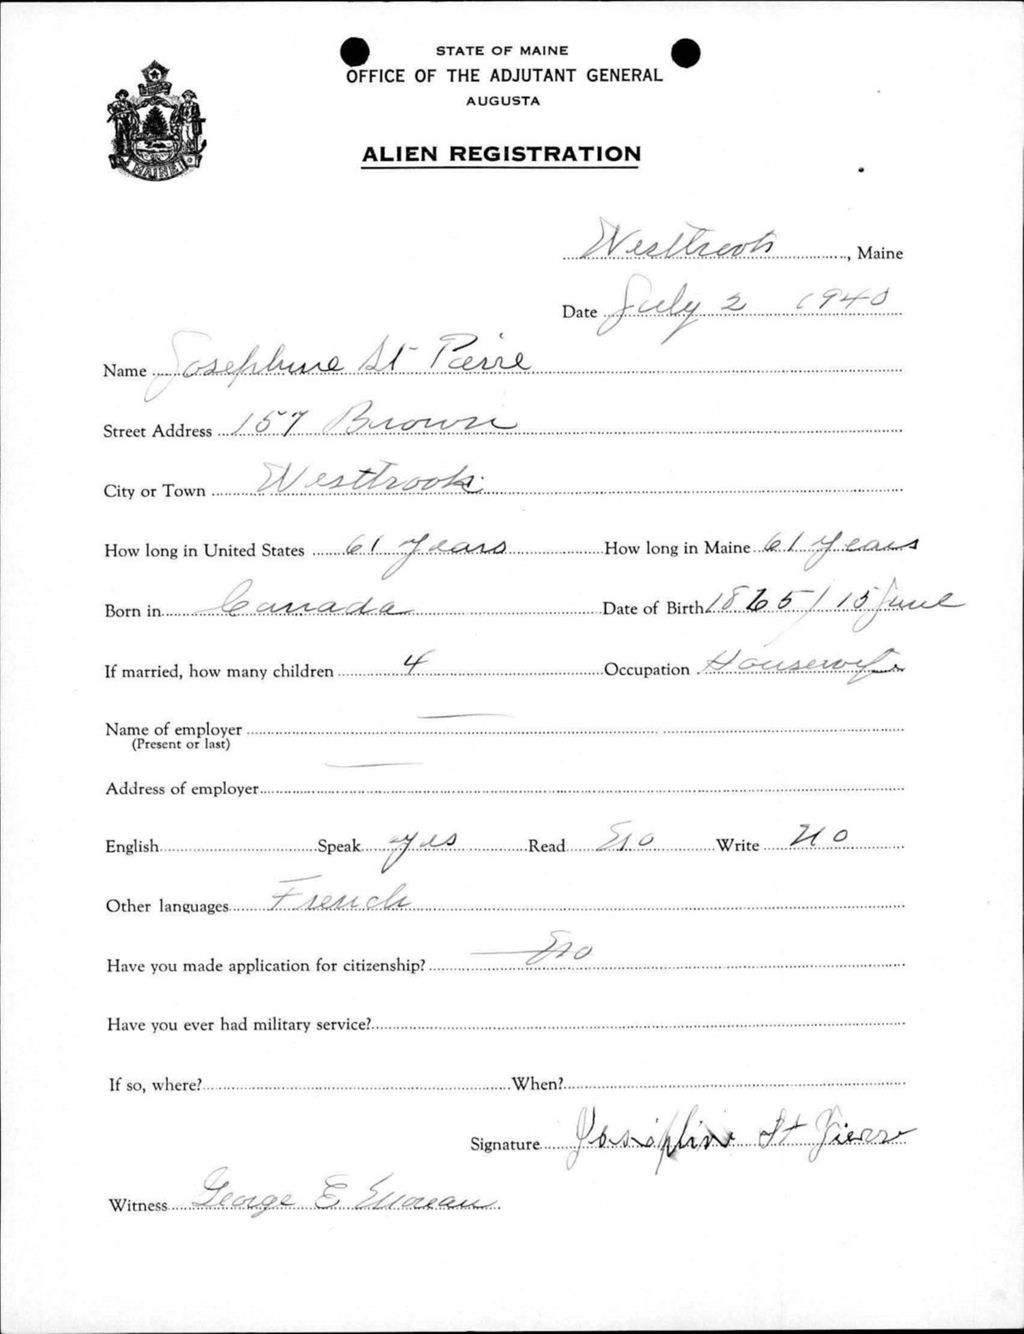 STATE OF MAINE
OFFICE OF THE ADJUTANT GENERAL
AUGUSTA
ALIEN REGISTRATION
MAINE
Westbrook, Maine
Date July 2 1940
Name Josephine St Pierre
Street Address 157 Brown
City or Town Westbrook
How long in United States 61 years How long in Maine 61 years
Born in Canada Date of Birth 1865 / 15 June
If married, how many children 4 Occupation Housewife
Name of employer —
(Present or last)
Address of employer —
English Speak yes Read No Write No
Other languages French
Have you made application for citizenship? — No
Have you ever had military service?
If so, where? When?
Signature Josephine St Pierre
Witness George E